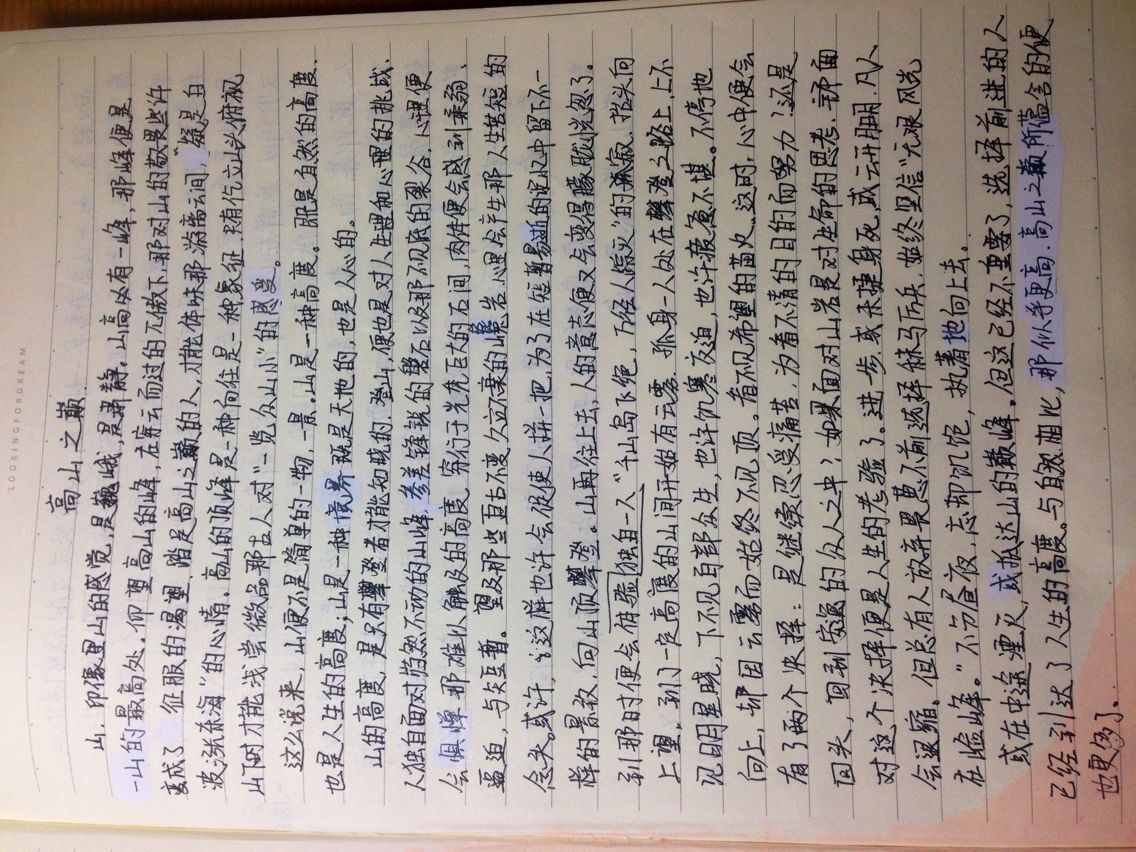 LOOKINGFORDREAM
高山之巅
山，印象里山的感觉，是巍峨，是肃静。山高必有一峰，那峰便是
一山的最高处。仰望高山的峰，在磨云而过的兀傲下，那对山的敬畏些许
变成了征服的渴望，踏足高山之巅的人，才能体味那游离云间，“疑是白
波涨东海”的心情，高山的顶峰是一种向往是一种象征，只有伫立山头俯视
山河时才能浅尝微品那古人对“一览众山小”的感受。
这么说来，山便不是简单的一物，一景。山是一种高度。既是自然的高度，
也是人生的高度；山是一种境界，既是天地的，也是人心的。
山的高度，是只有攀登者才能知晓的，登山，便也是对人生理和心理的挑战，
人独自面对岿然不动的山峰，参差锋锐的磐石以及那不见底的裂谷，心里便
会惧惮那难以触及的高度，穷行于光秃巨的石间，肉体便会感到柔弱、
逼迫，与矢互暂。望及那些亘古不变，久立衰的巉岩心里会产生那人生苦短的
念头。或许，这样也许会促使人拼一把，为了在短暂易逝的时代中留下不一
样的景致，向山顶攀登。山再往上去，人的意志便又会变得朦胧恍忽了。
到那时便会体验独自一人“千山鸟飞绝，万径人踪灭”的孤寂，抬头向
上望，到了一定高度的山间开始有云雾，孤身一人处在攀登之路上，上不
见日月星晓，下不见白郡众生，也许饥寒交迫，也许疲惫不堪。不停地
向上，却因云雾而始终不见顶。看不见希望的苗火，这时，心中便会
有了两个决择：是继续忍受痛苦，为看不清的目的而努力？还是
回头，回到安逸的众人之中？如果面对山岩是对生命的思考，那面
对这个决择便是人生的考验了。进一步，或未捷身死，或云开月明，凡人
会退缩。但总有人放弃畏惧不前选择秣马厉兵，始终坚信“无限风光
在险峰。”不分昼夜，忘却饥饱，执著地向上去。
或在中途湮灭，或抵达山的巅峰。但这已经不重要了，选择前进的人
已经到达了人生的高度。与自然相比，那似乎更高，高山之巅所蕴含的便
也更俩了。